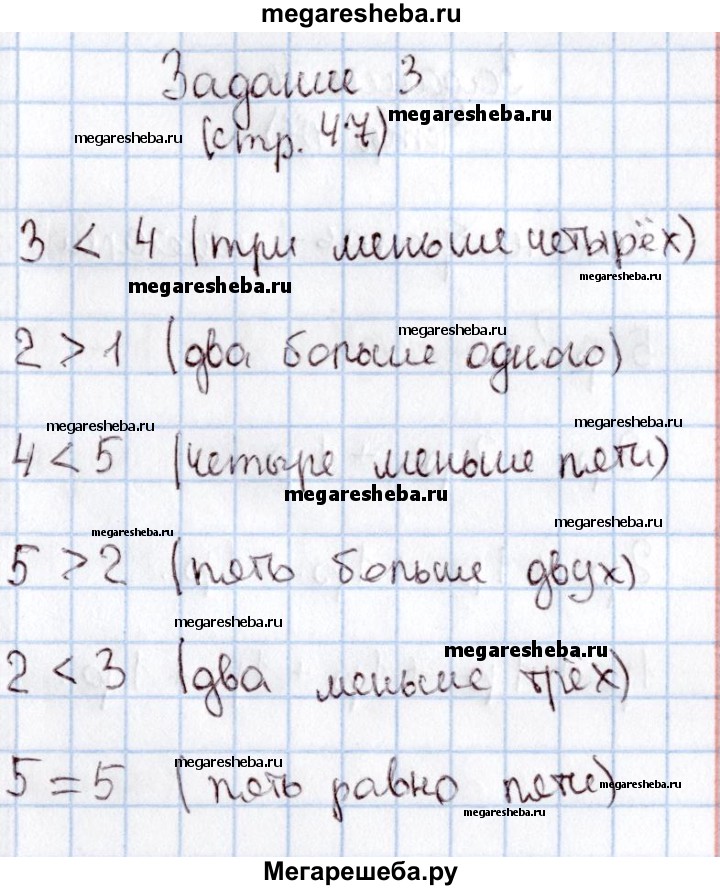 megaresheba.ru
Задание 3
megaresheba.ru
megaresheba.ru
(стр. 47)
3 < 4 (три меньше четырёх)
megaresheba.ru
megaresheba.ru
megaresheba.ru
2 > 1 (два больше одного)
megaresheba.ru
megaresheba.ru
4 < 5 (четыре меньше пяти)
megaresheba.ru
megaresheba.ru
megaresheba.ru
5 > 2 (пять больше двух)
megaresheba.ru
megaresheba.ru
2 < 3 (два меньше трёх)
megaresheba.ru
5 = 5 (пять равно пяти)
megaresheba.ru
megaresheba.ru
Мегарешеба.ру